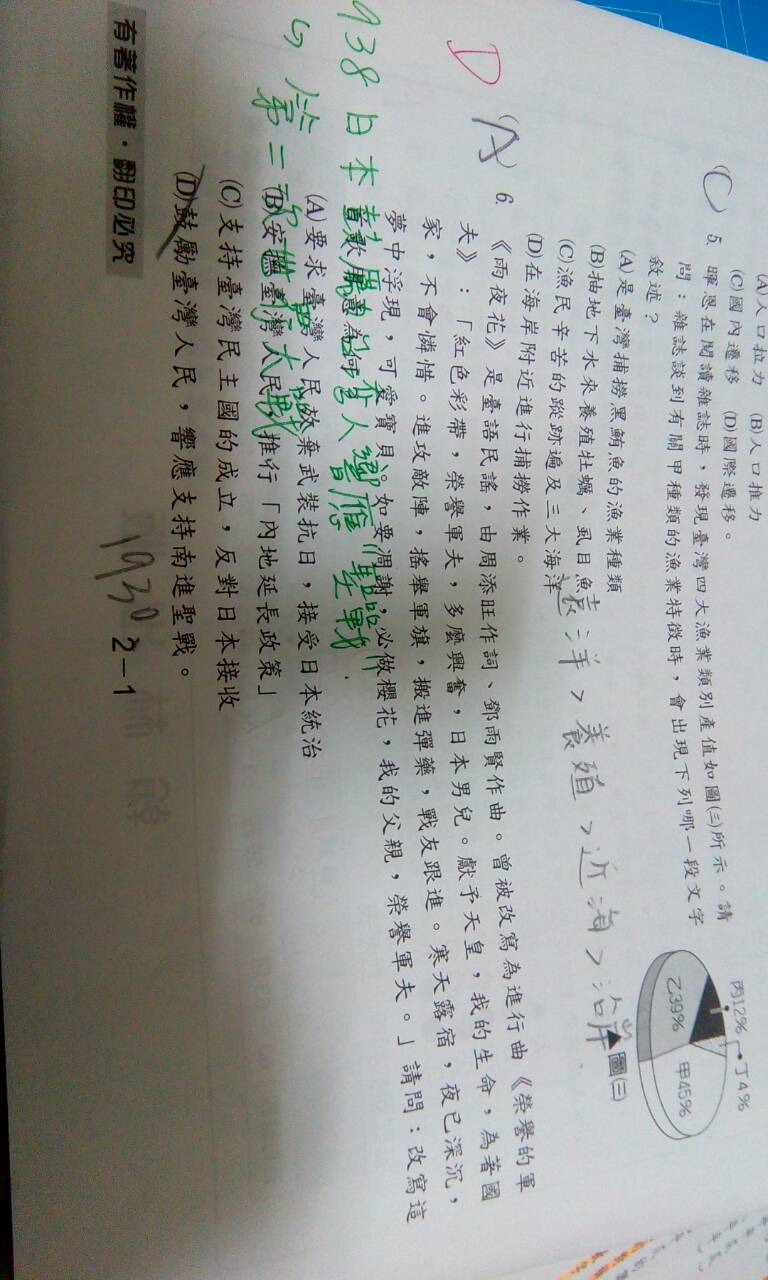 (A)人口拉力　(B)人口推力
(C)國內遷移　(D)國際遷移。
(C) 5. 暉恩在閱讀雜誌時，發現臺灣四大漁業類別產值如圖(三)所示。請
問：雜誌談到有關甲種類的漁業特徵時，會出現下列哪一段文字
敘述？
(A)是臺灣捕撈黑鮪魚的漁業種類
(B)抽地下水來養殖牡蠣、虱目魚
(C)漁民辛苦的蹤跡遍及三大海洋
(D)在海岸附近進行捕撈作業。
遠洋>養殖>近海>沿岸
丙12%
丁4%
乙39%
甲45%
▲圖(三)
D (A) 6. 《雨夜花》是臺語民謠，由周添旺作詞、鄧雨賢作曲。曾被改寫為進行曲《榮譽的軍
夫》：「紅色彩帶，榮譽軍夫，多麼興奮，日本男兒。獻予天皇，我的生命，為著國
家，不會憐惜。進攻敵陣，搖舉軍旗，搬進彈藥，戰友跟進。寒天露宿，夜已深沉，
夢中浮現，可愛寶貝。如要凋謝，必做櫻花，我的父親，榮譽軍夫。」請問：改寫這
首歌用意為何？
(A)要求臺灣人民放棄武裝抗日，接受日本統治
(B)安撫臺灣人民，推行「內地延長政策」
(C)支持臺灣民主國的成立，反對日本接收
(D)鼓勵臺灣人民，響應支持南進聖戰。
938 日本鼓勵台灣人響應聖戰
↳ 第二次世界大戰
1930
2－1
有著作權‧翻印必究